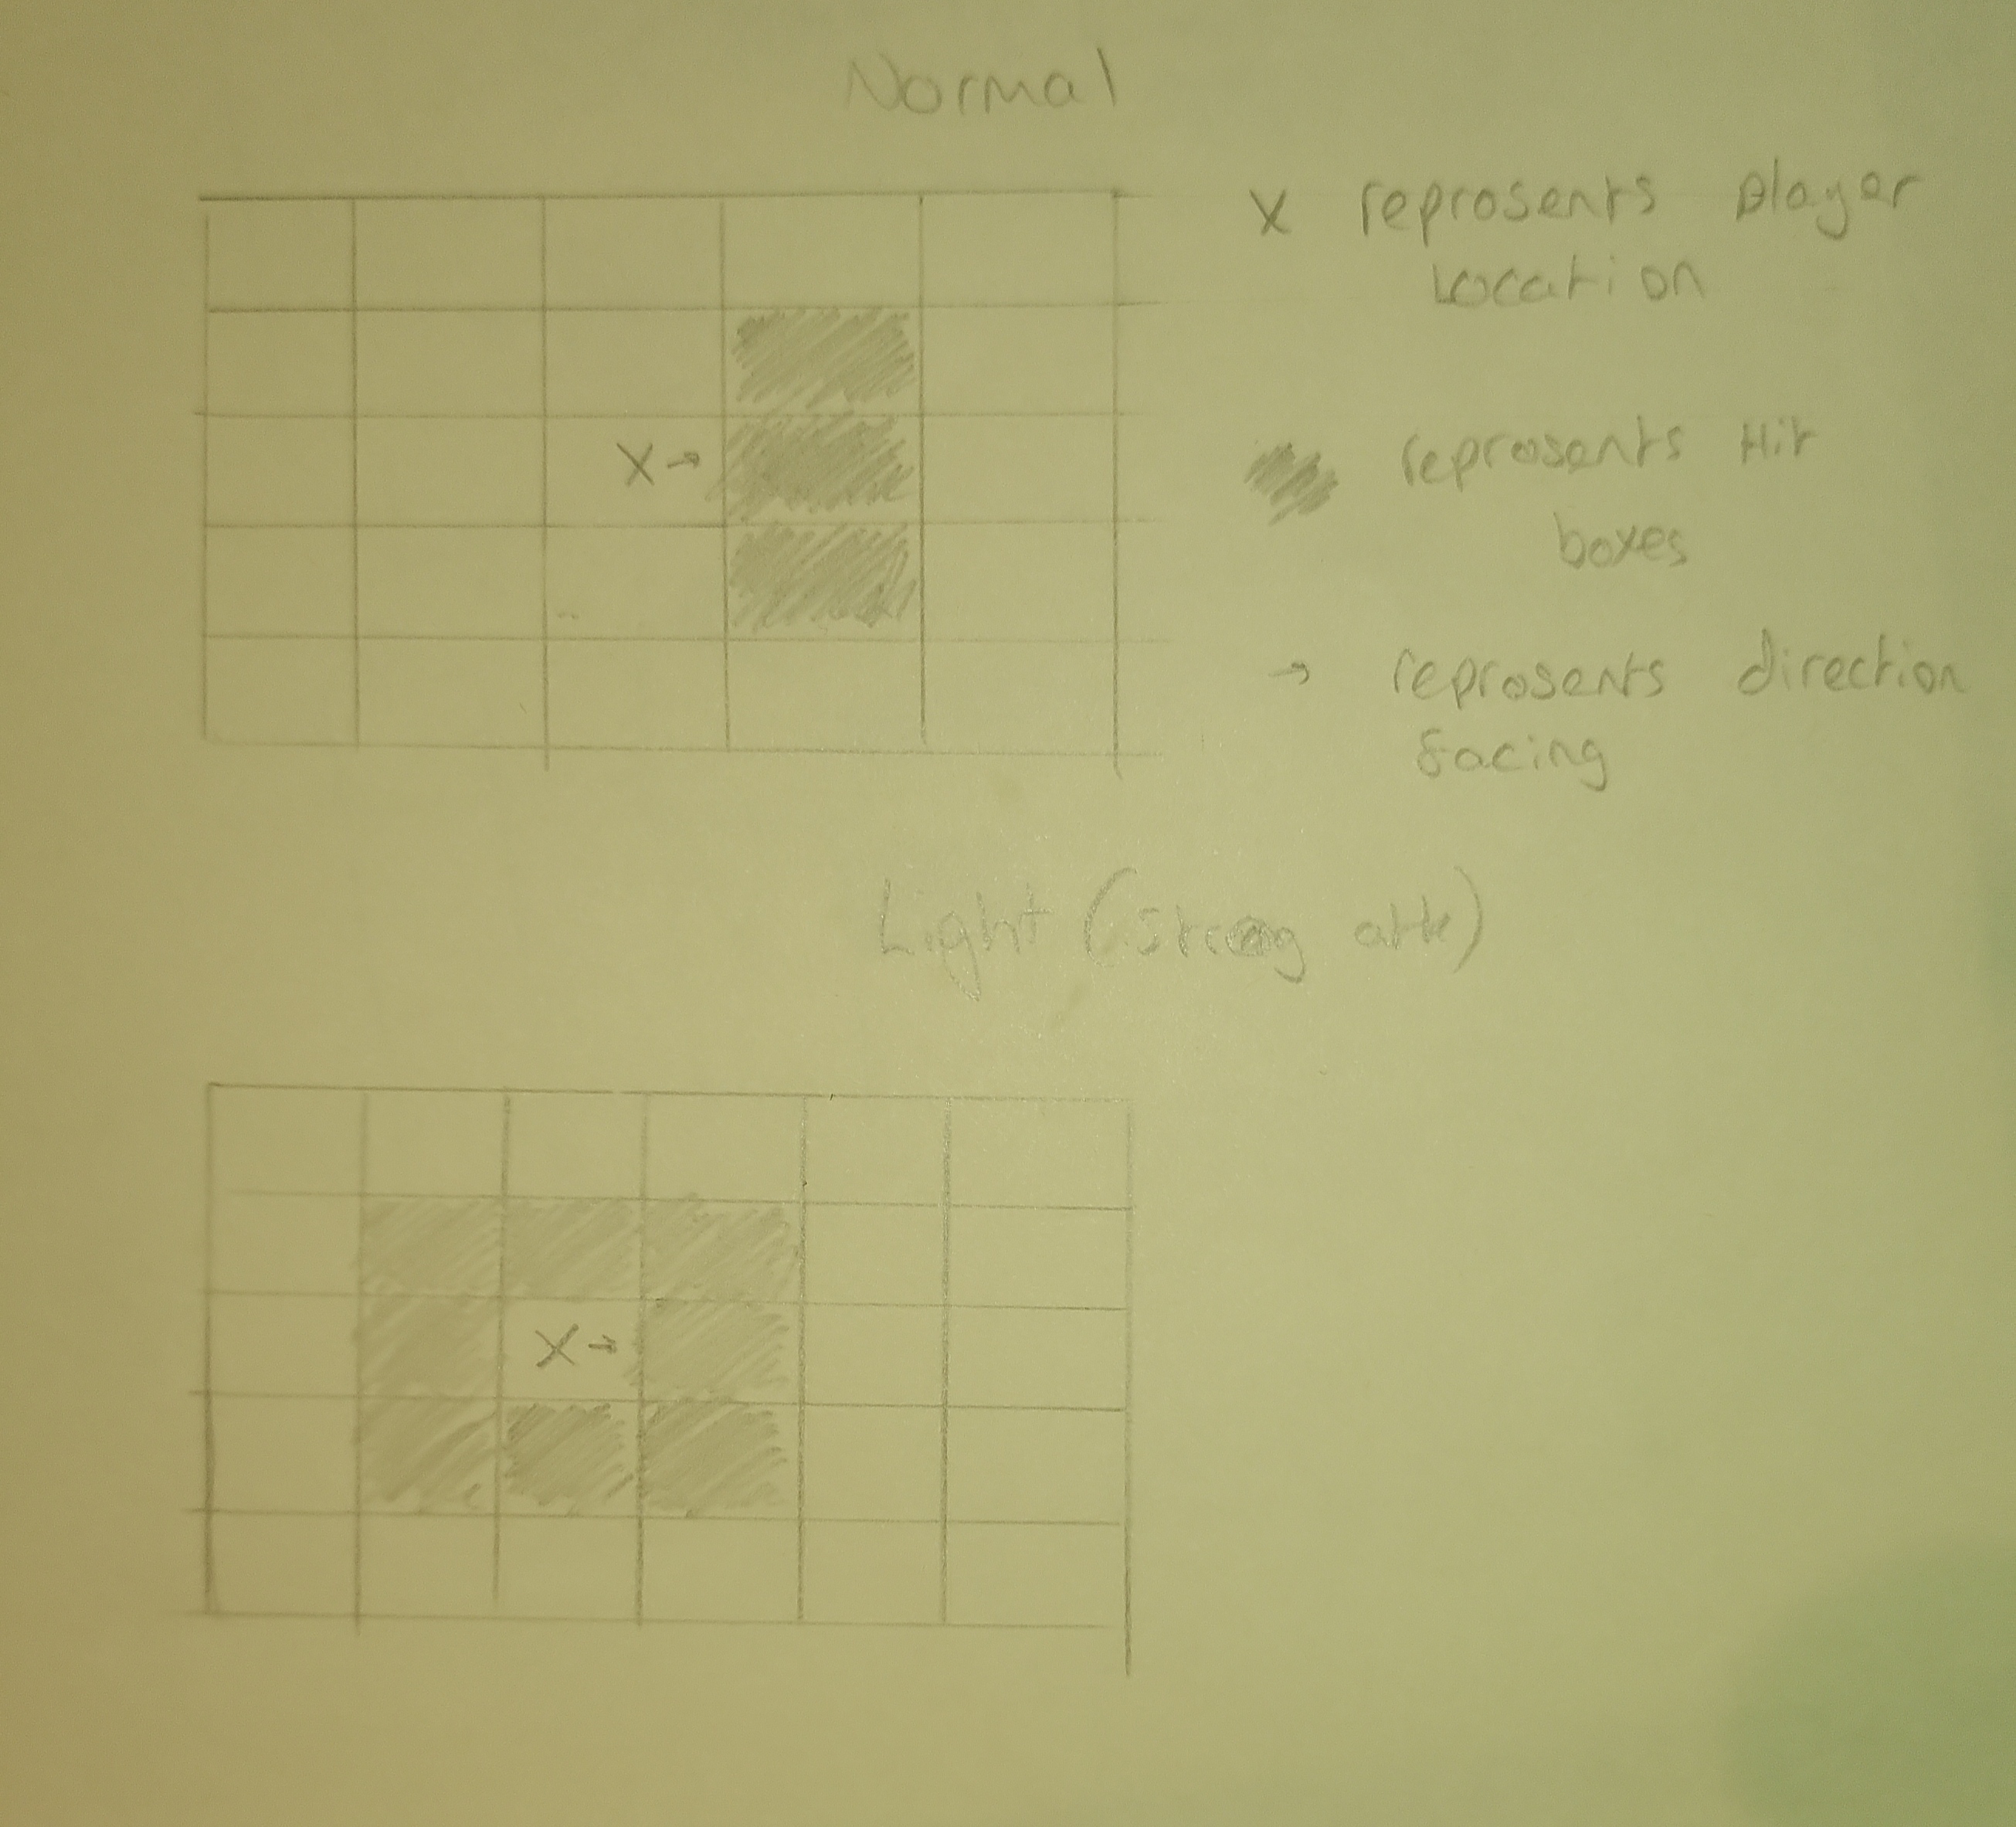 Normal
X represents player
Location
represents Hit
boxes
X→
→ represents direction
facing
Light (strong attk)
X→